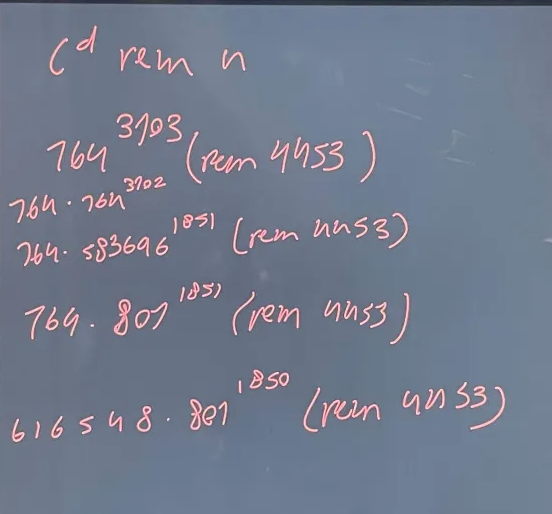 C^d rem n
764^3703 (rem 4453)
764 · 764^3702
764 · 583696^1851 (rem 4453)
764 · 807^1851 (rem 4453)
616548 · 807^1850 (rem 4453)